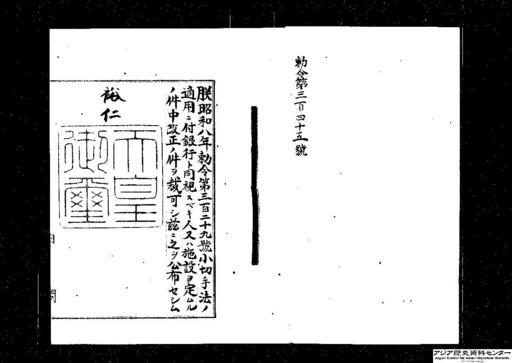 勅令第三百四十五號
朕昭和八年勅令第三百二十九號小切手法ノ
適用ニ付銀行ト同視スベキ人又ハ施設ヲ定ムル
ノ件中改正ノ件ヲ裁可シ茲ニ之ヲ公布セシム
裕仁
天皇御璽
アジア歴史資料センター
Japan Center for Asian Historical Records